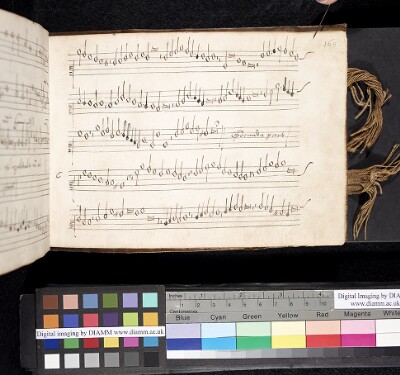 Secunda pars
C
Digital Imaging by DIAMM www.diamm.ac.uk
Inches 1 2 3 4
Centimetres
Digital Imaging by DIAMM
www.diamm.ac.uk
Blue Cyan Green Yellow Red Magenta White